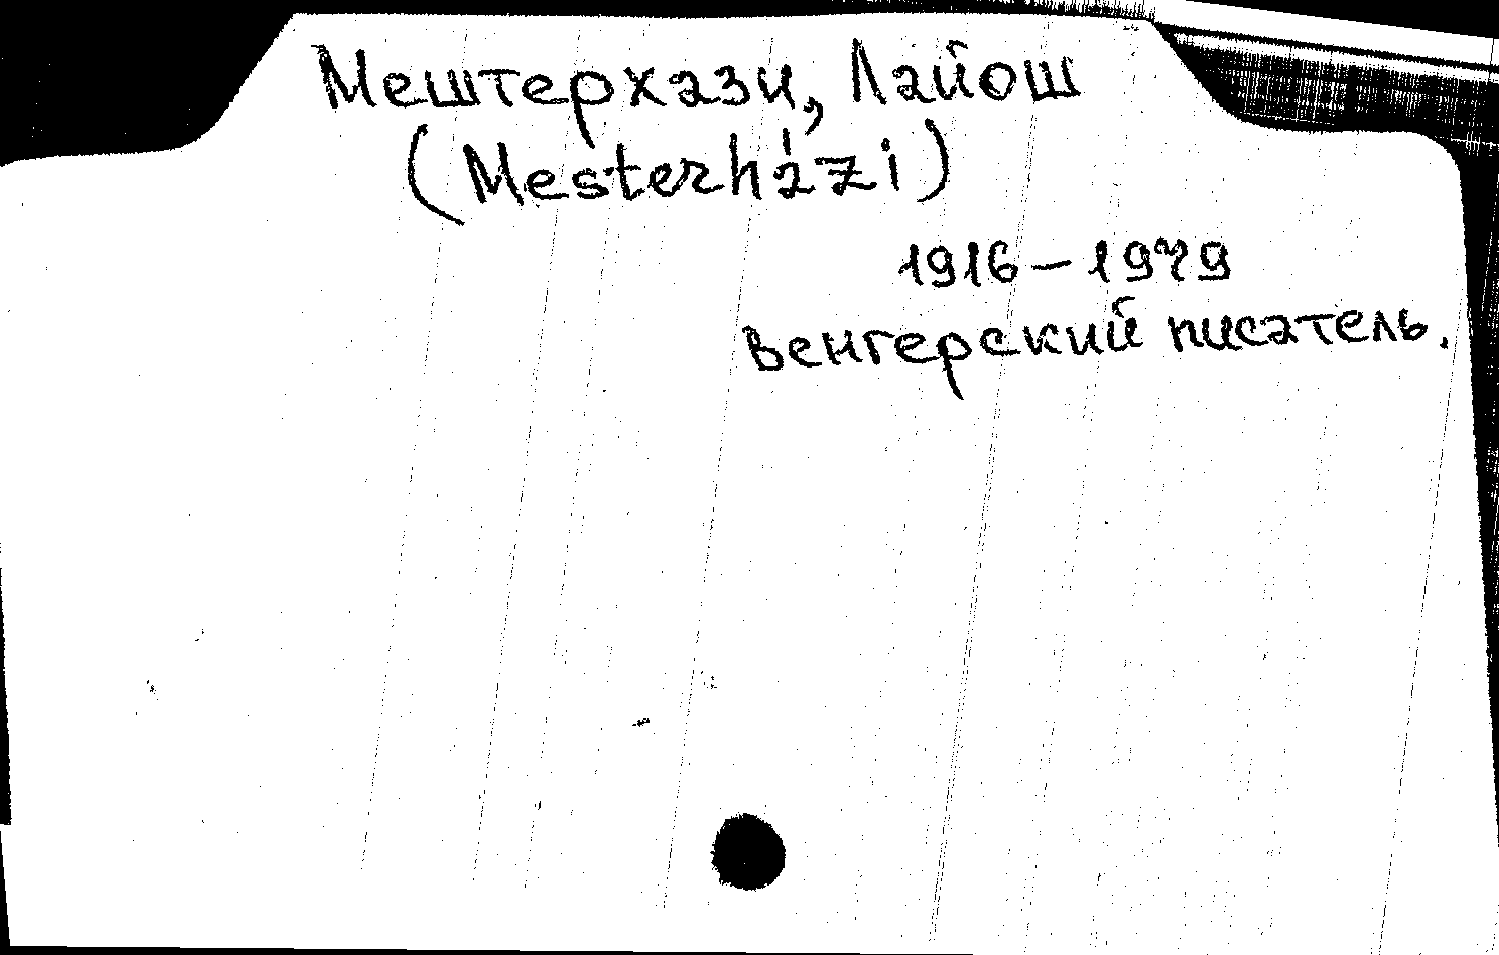 Мештерхази, Лайош
(Mesterházi)
1916 – 1979
венгерский писатель.